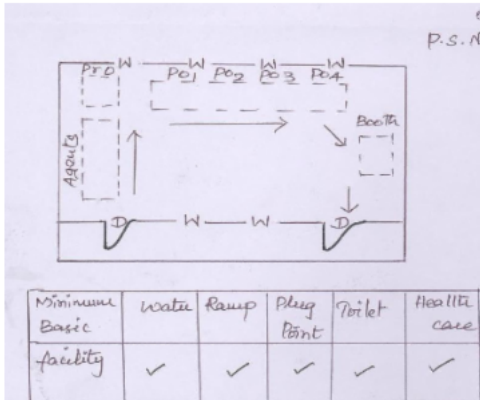 P.S. N
W W W W
PrO PO1 PO2 PO3 PO4
Booth
Agents
D W W D
Minimum Basic facility
Water
Ramp
Plug Point
Toilet
Health care
✓ ✓ ✓ ✓ ✓